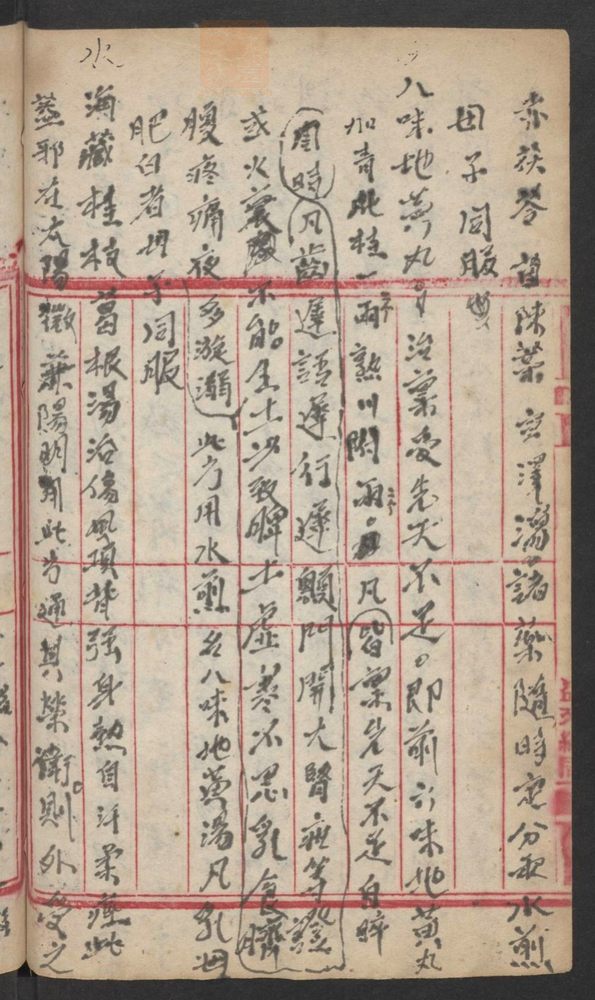 赤茯苓 胡陳葉 宣澤瀉 諸藥隨時定分兩水煎
母子同服
八味地黃丸 治稟受先天不足即前六味地黃丸
加青化桂一兩 熟川附 兩 凡皆稟先天不足自晬
周時凡齒遲語遲行遲顖門開大腎疳等證
或火衰不能生土以致脾土虛寒不思乳食臍
腹疼痛夜多漩溺此方用水煎名八味地黃湯凡乳母
肥白者母子同服
海藏桂枝葛根湯治傷風項背強身熱自汗柔痙此
蓋邪在太陽徵兼陽明用此方通其榮衛則外受之
水